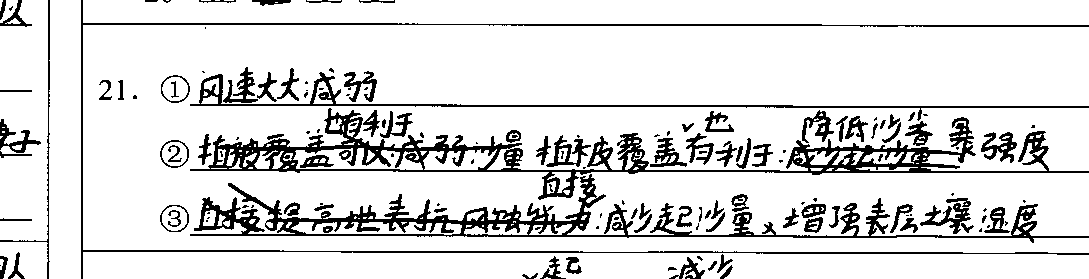 21. ①风速大大减弱
也有利于
②植被覆盖可以减弱沙量 植被覆盖也有利于减少起沙量 降低沙尘暴强度
直接
③直接提高地表抗风蚀能力减少起沙量、增强表层土壤湿度
起 减少